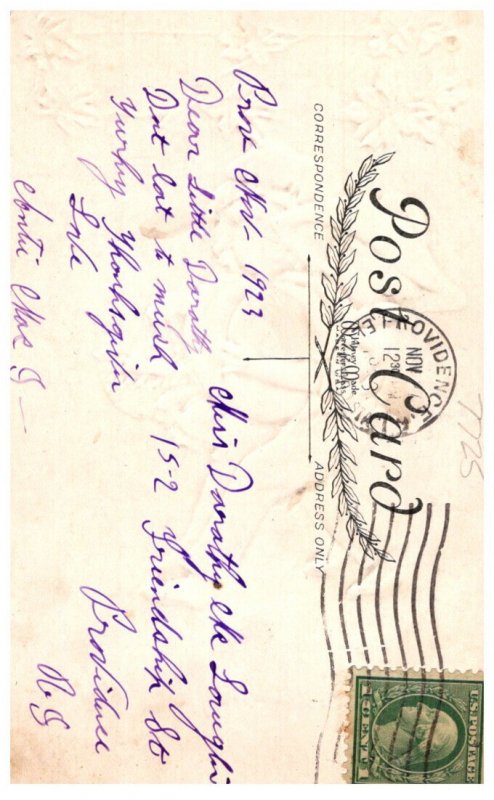 Post Card
CORRESPONDENCE
ADDRESS ONLY
PROVIDENC
NOV
12
U.S. POSTAGE
1 CENT 1
7725
Prov Nov 1923
Dear Little Dorothy
Dont eat to much
Turkey Thanksgiven
Love
Auntie Mac G
Miss Dorothy Mc Laughlin
152 Friendship St
Providence
R. I